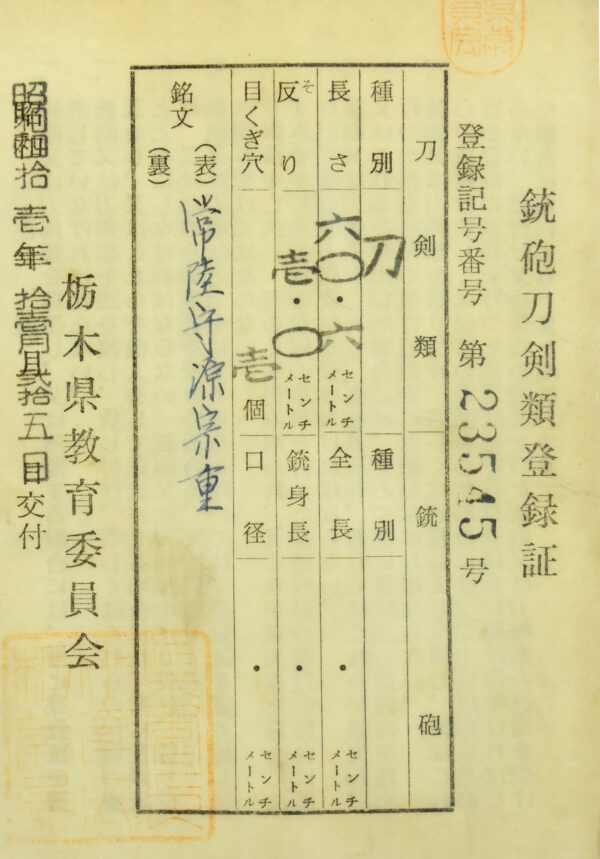 銃砲刀剣類登録証
登録記号番号 第 23545 号
刀剣類 銃砲
種別 刀 種別
長さ 六〇・六 センチメートル 全長 ・ センチメートル
反り 壱・〇 センチメートル 銃身長 ・ センチメートル
そ
目くぎ穴 壱個 口径 ・ センチメートル
銘文 (表) 常陸守源宗重
(裏)
栃木県教育委員会
昭和四拾壱年拾壱月弐拾五日交付